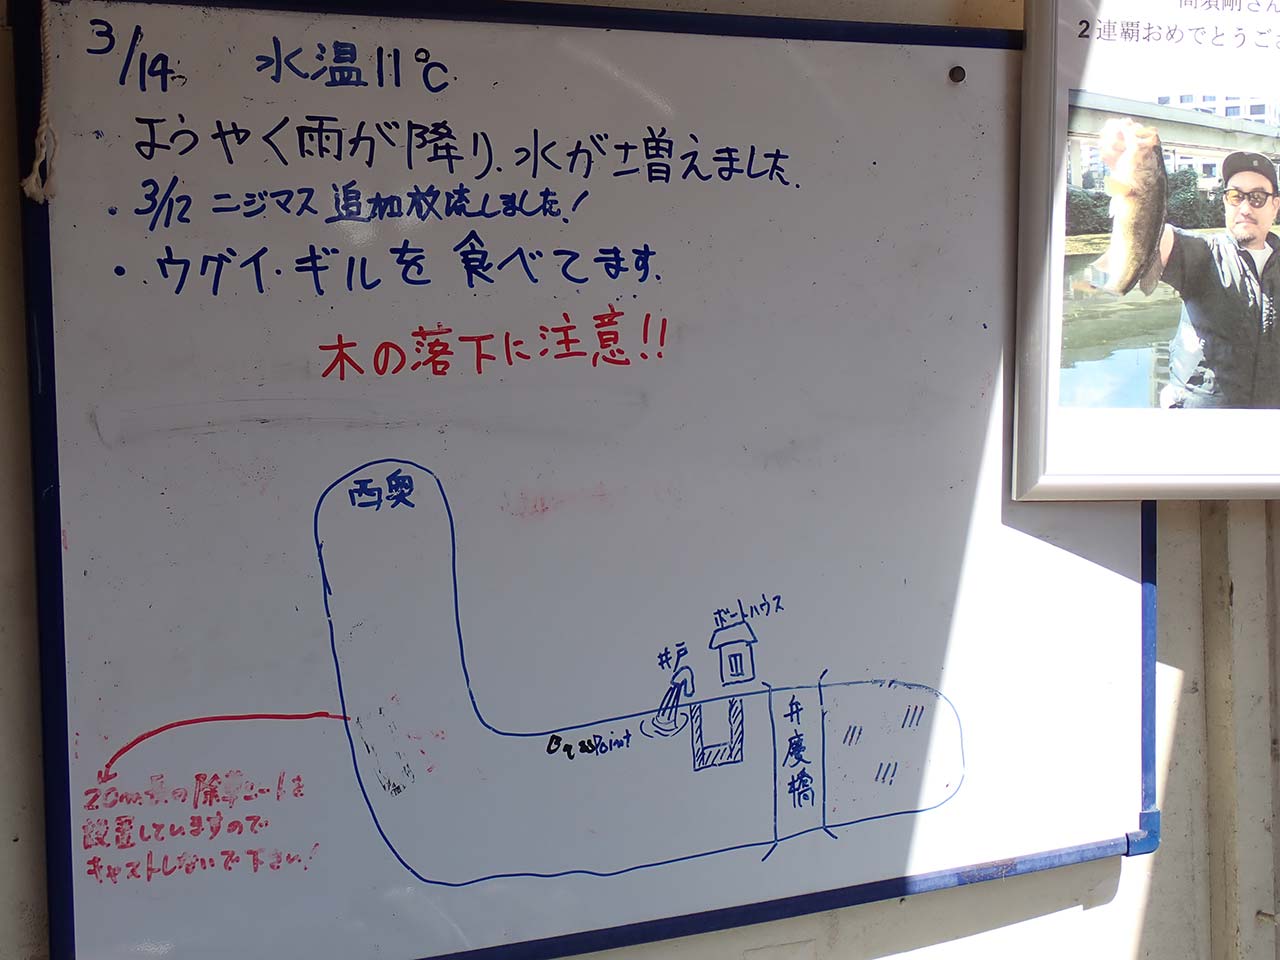 3/14 水温11℃
ようやく雨が降り、水が増えました.
・3/12 ニジマス追加放流しました!
・ウグイ・ギルを食べてます.
木の落下に注意!!
西奥
ボートハウス
井戸
Bass Point
弁慶橋
の除草シートを
設置していますので
キャストしないで下さい!
高須剛さん
2連覇おめでとうござ